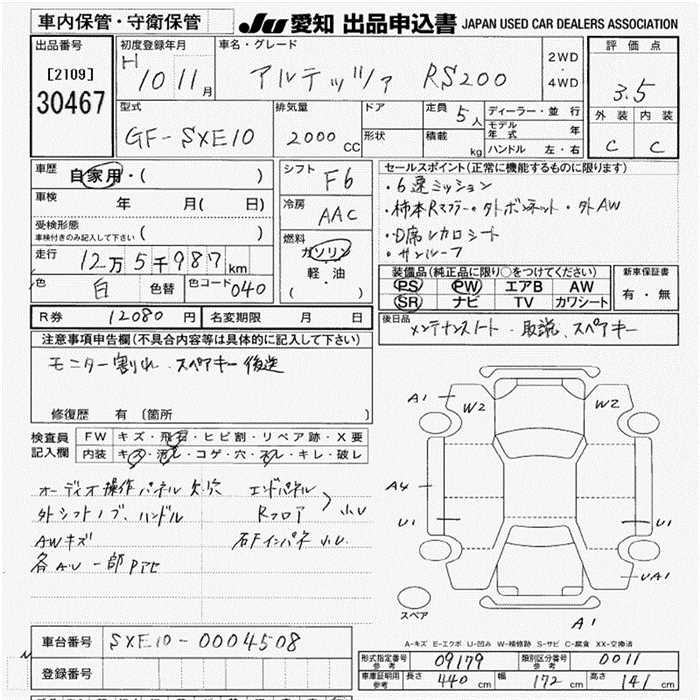 車内保管・守衛保管
JU 愛知 出品申込書 JAPAN USED CAR DEALERS ASSOCIATION
出品番号
[2109]
30467
初度登録年月
H 10 11月
車名・グレード
アルテッツァ RS200
2WD・4WD
評価点
3.5
外装 内装
C C
型式
GF-SXE10
排気量
2000CC
ドア
形状
定員 5人
積載 kg
ディーラー・並行
モデル年式 年
ハンドル 左・右
車歴
自家用・( )
車検 年 月( 日)
受検形態
車検付きのみ記入して下さい ( )
走行 12万5千987km
色 白 色替 色コード 040
シフト F6
冷房 AAC
燃料
ガソリン
軽・油
( )
セールスポイント(正常に機能するものに限ります)
・6速ミッション
・柿本Rマフラー・外ボンネット・外AW
・D席レカロシート
・サンルーフ
装備品(純正品に限り○をつけてください)
PS PW エアB AW
SR ナビ TV カワシート
新車保証書
有・無
後日品
メンテナンスノート・取説、スペアキー
R券 12080円 名変期限 月 日
注意事項申告欄(不具合内容等は具体的に記入して下さい)
モニター割れ、スペアキー後送
修復歴 有 (箇所 )
検査員記入欄
FW キズ・飛石・ヒビ割・リペア跡・X要
内装 キズ・汚レ・コゲ・穴・スレ・キレ・破レ
オーディオ操作パネル欠次 エンドパネル
外シフトノブ、ハンドル Rフロア 小U
AWキズ 右Fインパネ小U
各A・U 一部Pアセ
A1 W2 W2
A4
U1 U1
UA1
A1
スペア
A-キズ E-エクボ U-凹み W-補修跡 S-サビ C-腐食 XX-交換済
車台番号 SXE10-0004508
登録番号
形式指定番号 参考 09179 類別区分番号 参考 0011
車庫証明用 参考 長さ 440cm 幅 172cm 高さ 141cm